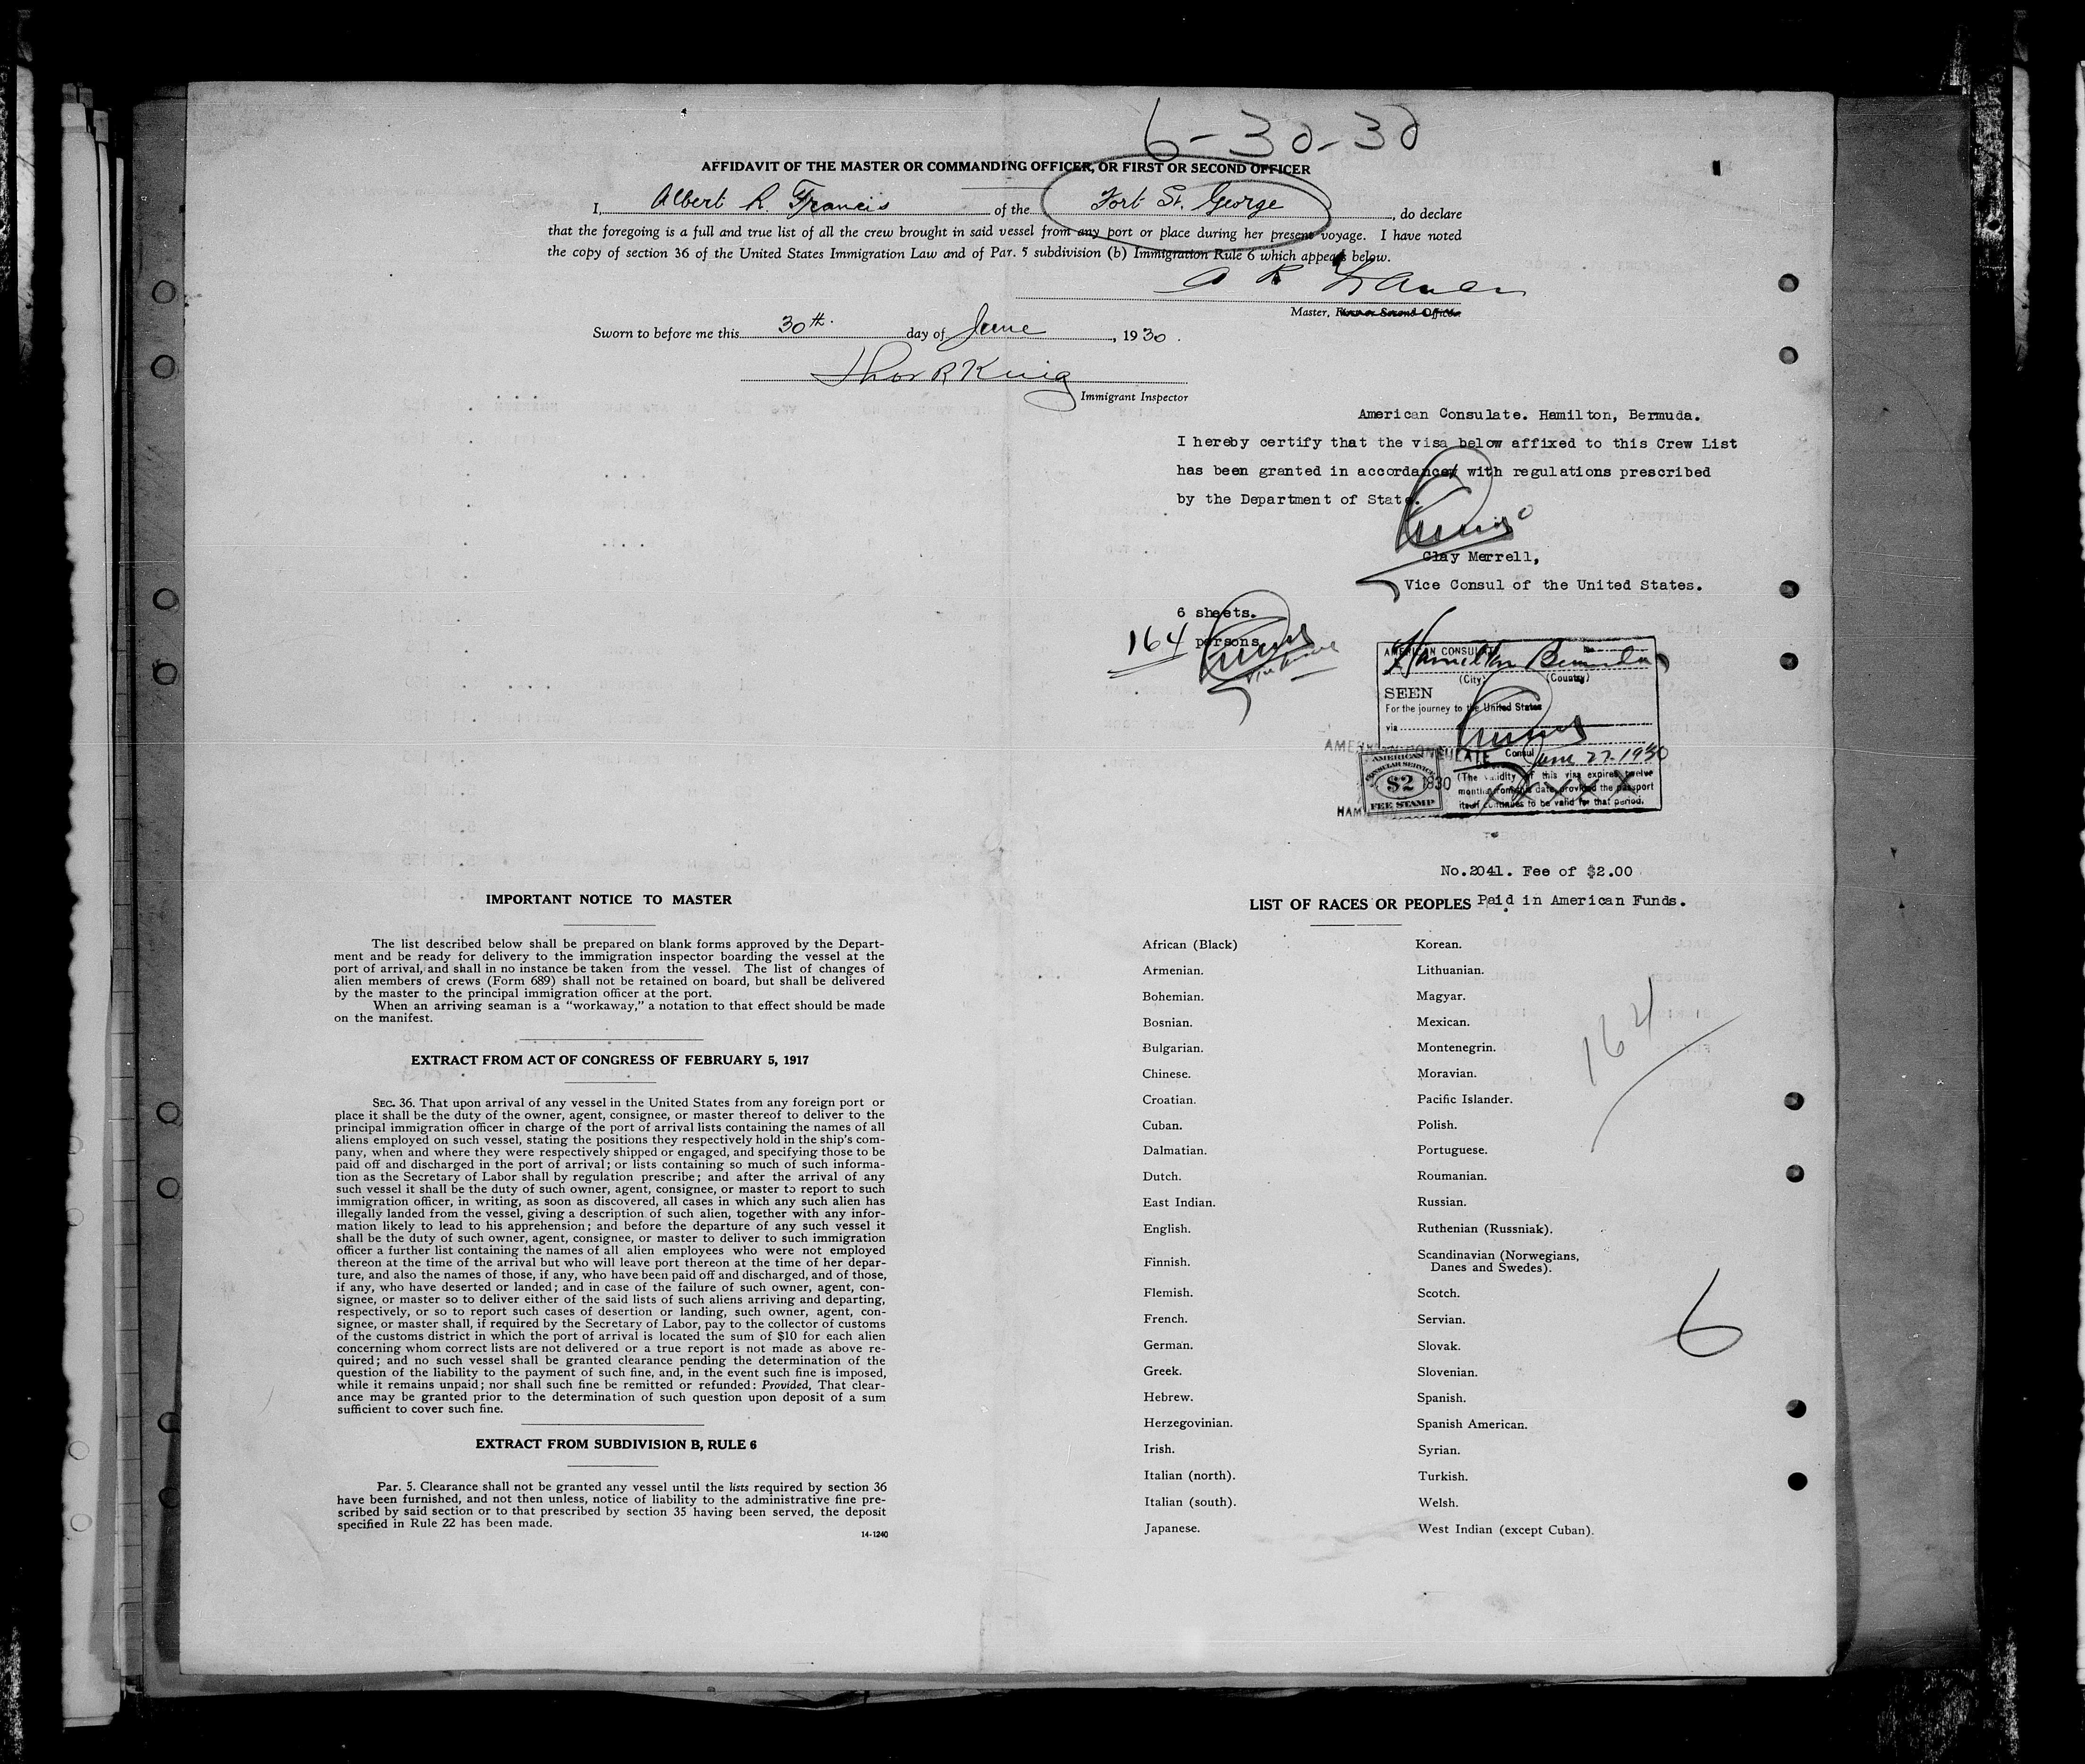 6-30-30
AFFIDAVIT OF THE MASTER OR COMMANDING OFFICER, OR FIRST OR SECOND OFFICER
I, Albert R. Francis of the Fort St. George, do declare
that the foregoing is a full and true list of all the crew brought in said vessel from any port or place during her present voyage. I have noted
the copy of section 36 of the United States Immigration Law and of Par. 5 subdivision (b) Immigration Rule 6 which appears below.
A R
Master, First or Second Officer
Sworn to before me this 30th. day of June, 1930.
Thos R King
Immigrant Inspector
American Consulate. Hamilton, Bermuda.
I hereby certify that the visa below affixed to this Crew List
has been granted in accordance with regulations prescribed
by the Department of State.
Clay Merrell,
Vice Consul of the United States.
6 sheets.
164 persons
AMERICAN CONSULATE No.
Hamilton Bermuda
(City) (Country)
SEEN
For the journey to the United States
via
Consul
June 27. 1930
(The validity of this visa expires twelve
months from this date, provided the passport
itself continues to be valid for that period.
AMERICAN CONSULATE
1930
HAM
AMERICAN
CONSULAR SERVICE
$2
FEE STAMP
No.2041. Fee of $2.00
Paid in American Funds.
IMPORTANT NOTICE TO MASTER
The list described below shall be prepared on blank forms approved by the Depart-
ment and be ready for delivery to the immigration inspector boarding the vessel at the
port of arrival, and shall in no instance be taken from the vessel. The list of changes of
alien members of crews (Form 689) shall not be retained on board, but shall be delivered
by the master to the principal immigration officer at the port.
When an arriving seaman is a "workaway," a notation to that effect should be made
on the manifest.
EXTRACT FROM ACT OF CONGRESS OF FEBRUARY 5, 1917
SEC. 36. That upon arrival of any vessel in the United States from any foreign port or
place it shall be the duty of the owner, agent, consignee, or master thereof to deliver to the
principal immigration officer in charge of the port of arrival lists containing the names of all
aliens employed on such vessel, stating the positions they respectively hold in the ship's com-
pany, when and where they were respectively shipped or engaged, and specifying those to be
paid off and discharged in the port of arrival; or lists containing so much of such informa-
tion as the Secretary of Labor shall by regulation prescribe; and after the arrival of any
such vessel it shall be the duty of such owner, agent, consignee, or master to report to such
immigration officer, in writing, as soon as discovered, all cases in which any such alien has
illegally landed from the vessel, giving a description of such alien, together with any infor-
mation likely to lead to his apprehension; and before the departure of any such vessel it
shall be the duty of such owner, agent, consignee, or master to deliver to such immigration
officer a further list containing the names of all alien employees who were not employed
thereon at the time of the arrival but who will leave port thereon at the time of her depar-
ture, and also the names of those, if any, who have been paid off and discharged, and of those,
if any, who have deserted or landed; and in case of the failure of such owner, agent, con-
signee, or master so to deliver either of the said lists of such aliens arriving and departing,
respectively, or so to report such cases of desertion or landing, such owner, agent, con-
signee, or master shall, if required by the Secretary of Labor, pay to the collector of customs
of the customs district in which the port of arrival is located the sum of $10 for each alien
concerning whom correct lists are not delivered or a true report is not made as above re-
quired; and no such vessel shall be granted clearance pending the determination of the
question of the liability to the payment of such fine, and, in the event such fine is imposed,
while it remains unpaid; nor shall such fine be remitted or refunded: Provided, That clear-
ance may be granted prior to the determination of such question upon deposit of a sum
sufficient to cover such fine.
EXTRACT FROM SUBDIVISION B, RULE 6
Par. 5. Clearance shall not be granted any vessel until the lists required by section 36
have been furnished, and not then unless, notice of liability to the administrative fine pre-
scribed by said section or to that prescribed by section 35 having been served, the deposit
specified in Rule 22 has been made.
14-1240
LIST OF RACES OR PEOPLES
African (Black)
Armenian.
Bohemian.
Bosnian.
Bulgarian.
Chinese.
Croatian.
Cuban.
Dalmatian.
Dutch.
East Indian.
English.
Finnish.
Flemish.
French.
German.
Greek.
Hebrew.
Herzegovinian.
Irish.
Italian (north).
Italian (south).
Japanese.
Korean.
Lithuanian.
Magyar.
Mexican.
Montenegrin.
Moravian.
Pacific Islander.
Polish.
Portuguese.
Roumanian.
Russian.
Ruthenian (Russniak).
Scandinavian (Norwegians,
Danes and Swedes).
Scotch.
Servian.
Slovak.
Slovenian.
Spanish.
Spanish American.
Syrian.
Turkish.
Welsh.
West Indian (except Cuban).
164
6